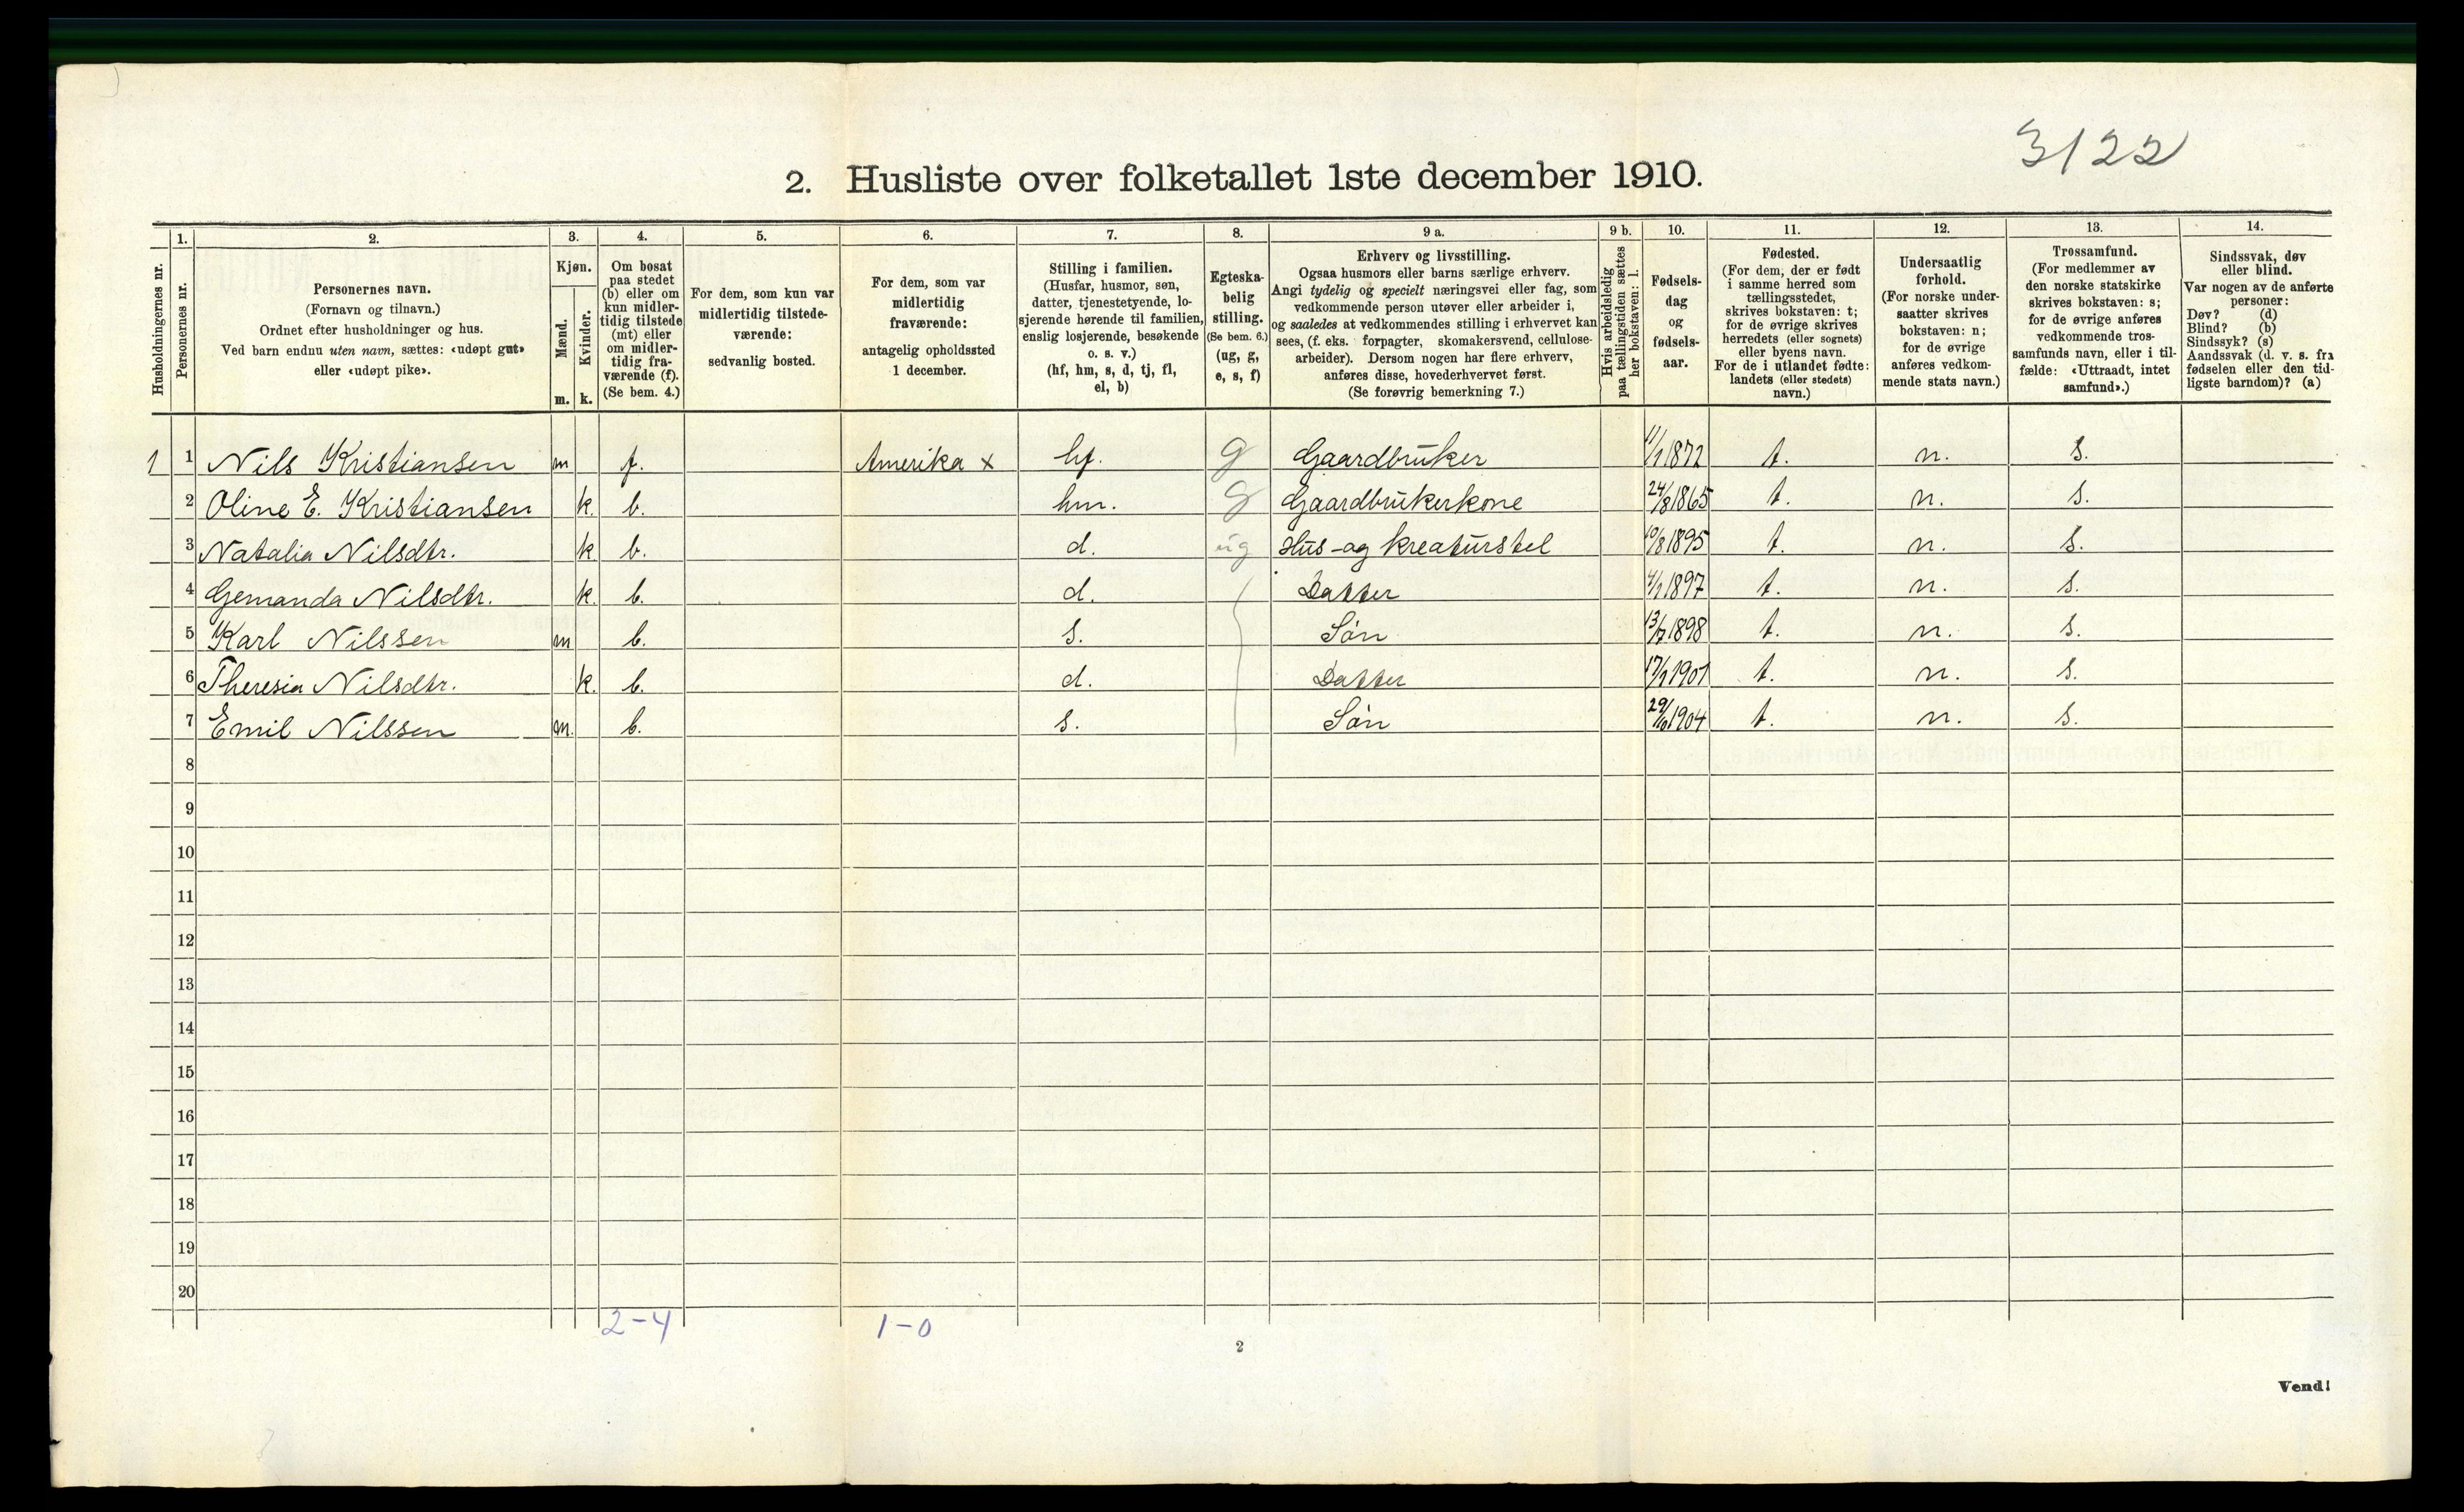 3122
2. Husliste over folketallet 1ste december 1910.
Husholdningernes nr.
1.
Personernes nr.
2.
Personernes navn.
(Fornavn og tilnavn.)
Ordnet efter husholdninger og hus.
Ved barn endnu uten navn, sættes: «udøpt gut»
eller «udøpt pike».
3.
Kjøn.
Mænd.
Kvinder.
m. k.
4.
Om bosat
paa stedet
(b) eller om
kun midler-
tidig tilstede
(mt) eller
om midler-
tidig fra-
værende (f).
(Se bem. 4.)
5.
For dem, som kun var
midlertidig tilstede-
værende:
sedvanlig bosted.
6.
For dem, som var
midlertidig
fraværende:
antagelig opholdssted
1 december.
7.
Stilling i familien.
(Husfar, husmor, søn,
datter, tjenestetyende, lo-
sjerende hørende til familien,
enslig losjerende, besøkende
o. s. v.)
(hf, hm, s, d, tj, fl,
el, b)
8.
Egteska-
belig
stilling.
(Se bem. 6.)
(ug, g,
e, s, f)
9 a.
Erhverv og livsstilling.
Ogsaa husmors eller barns særlige erhverv.
Angi tydelig og specielt næringsvei eller fag, som
vedkommende person utøver eller arbeider i,
og saaledes at vedkommendes stilling i erhvervet kan
sees, (f. eks. forpagter, skomakersvend, cellulose-
arbeider). Dersom nogen har flere erhverv,
anføres disse, hovederhvervet først.
(Se forøvrig bemerkning 7.)
9 b.
Hvis arbeidsledig
paa tællingstiden sættes
her bokstaven: l.
10.
Fødsels-
dag
og
fødsels-
aar.
11.
Fødested.
(For dem, der er født
i samme herred som
tællingsstedet,
skrives bokstaven: t;
for de øvrige skrives
herredets (eller sognets)
eller byens navn.
For de i utlandet fødte:
landets (eller stedets)
navn.)
12.
Undersaatlig
forhold.
(For norske under-
saatter skrives
bokstaven: n;
for de øvrige
anføres vedkom-
mende stats navn.)
13.
Trossamfund.
(For medlemmer av
den norske statskirke
skrives bokstaven: s;
for de øvrige anføres
vedkommende tros-
samfunds navn, eller i til-
fælde: «Uttraadt, intet
samfund».)
14.
Sindssvak, døv
eller blind.
Var nogen av de anførte
personer:
Døv? (d)
Blind? (b)
Sindssyk? (s)
Aandssvak (d. v. s. fra
fødselen eller den tid-
ligste barndom)? (a)
1 1 Nils Kristiansen m f. Amerika x hf. g Gaardbruker 11/1 1872 t. n. s.
2 Oline E. Kristiansen k. b. hm. g Gaardbrukerkone 24/8 1865 t. n. s.
3 Natalia Nilsdtr. k b. d. ug Hus- og kreaturstel 10/8 1895 t. n. s.
4 Gemanda Nilsdtr. k. b. d. Datter 4/1 1897 t. n. s.
5 Karl Nilssen m b. s. Søn 13/7 1898 t. n. s.
6 Theresia Nilsdtr. k. b. d. Datter 17/1 1901 t. n. s.
7 Emil Nilssen m. b. s. Søn 29/10 1904 t. n. s.
8
9
10
11
12
13
14
15
16
17
18
19
20
2-4 1-0
2
Vend!